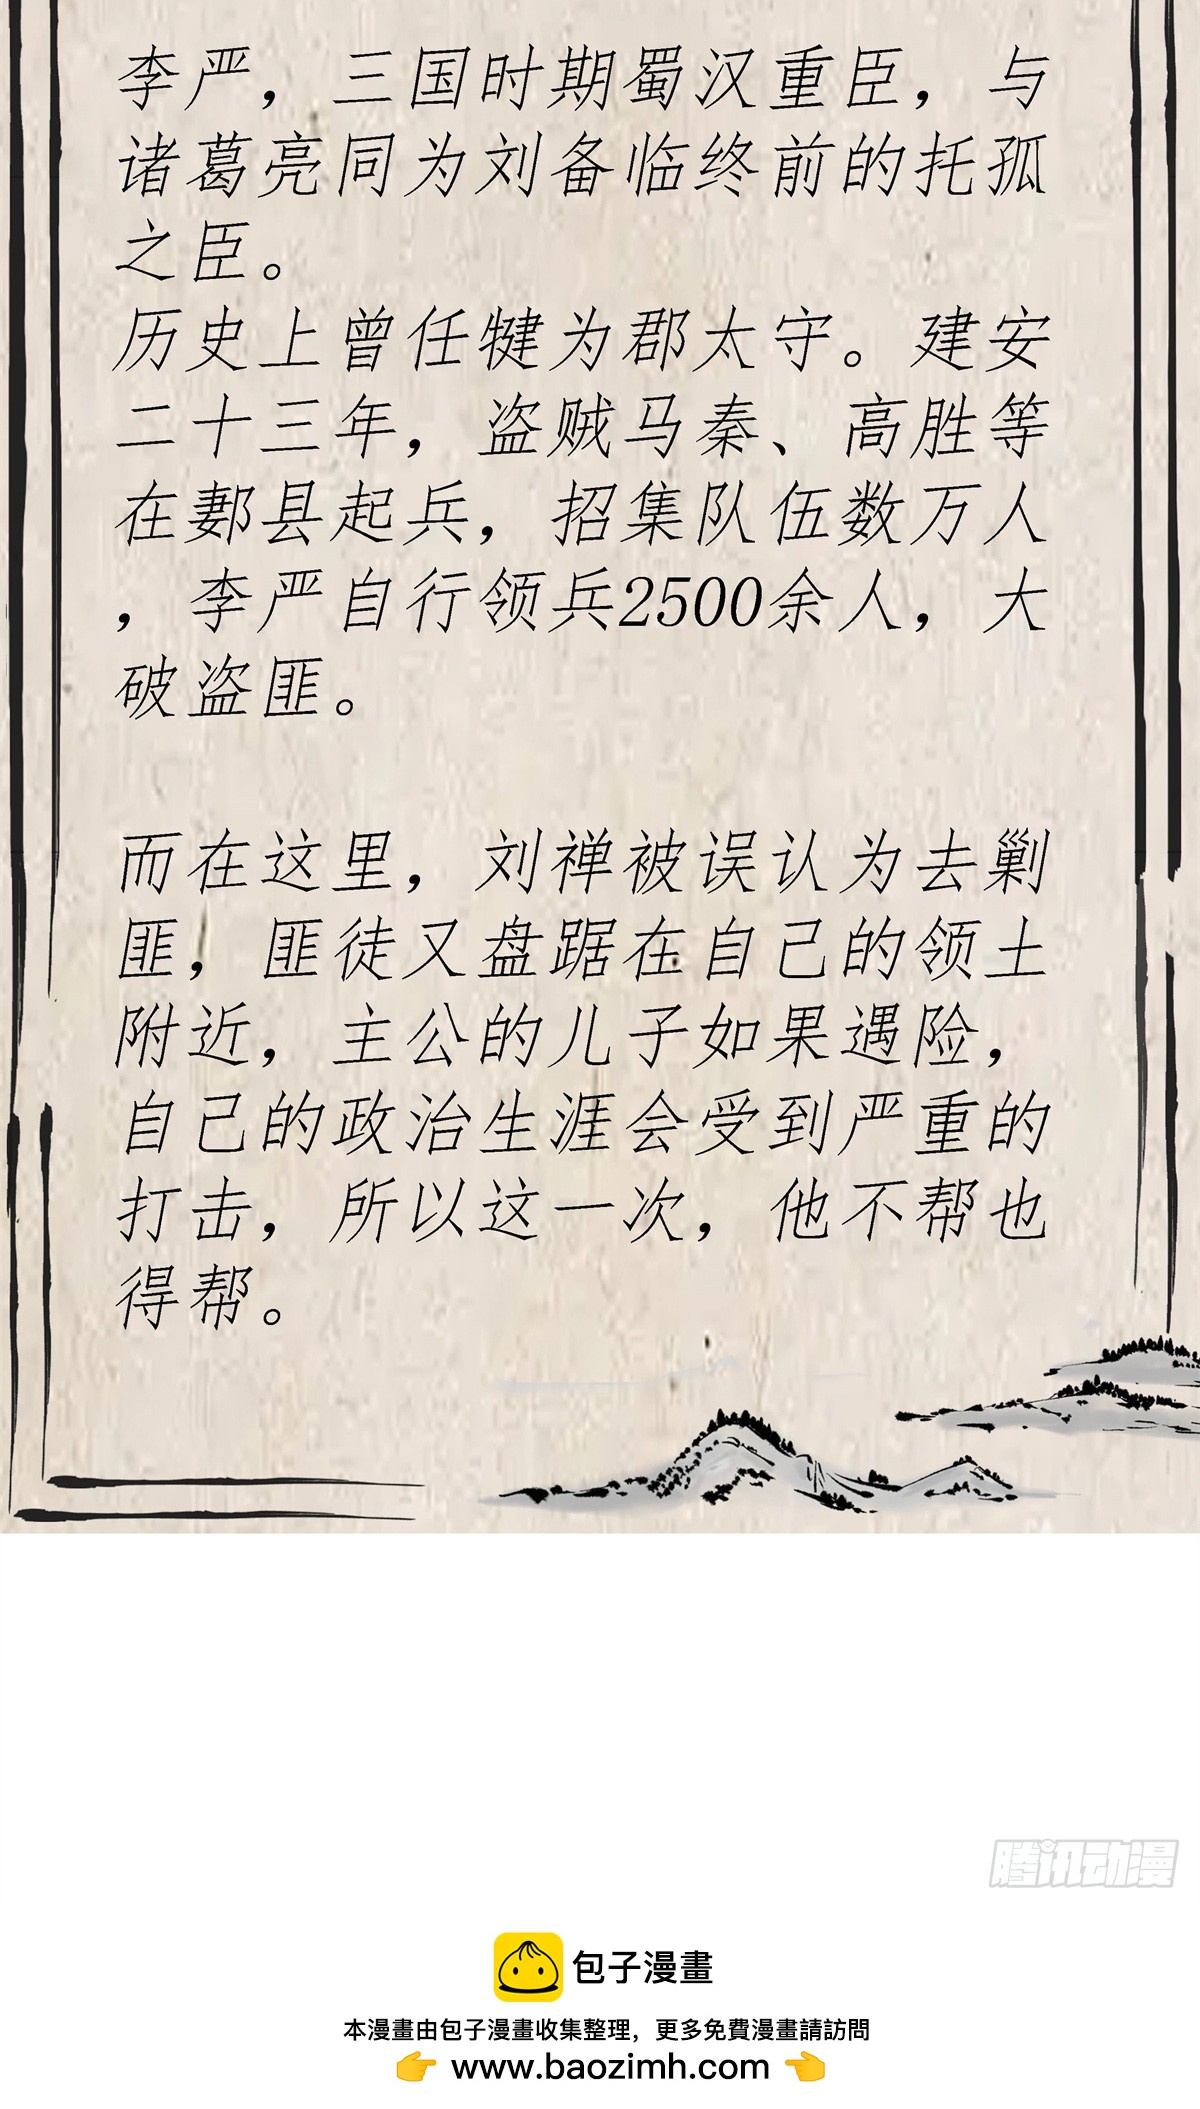 李严，三国时期蜀汉重臣，与
诸葛亮同为刘备临终前的托孤
之臣。
历史上曾任犍为郡太守。建安
二十三年，盗贼马秦、高胜等
在郪县起兵，招集队伍数万人
，李严自行领兵2500余人，大
破盗匪。
而在这里，刘禅被误认为去剿
匪，匪徒又盘踞在自己的领土
附近，主公的儿子如果遇险，
自己的政治生涯会受到严重的
打击，所以这一次，他不帮也
得帮。
腾讯动漫
包子漫畫
本漫畫由包子漫畫收集整理，更多免費漫畫請訪問
www.baozimh.com